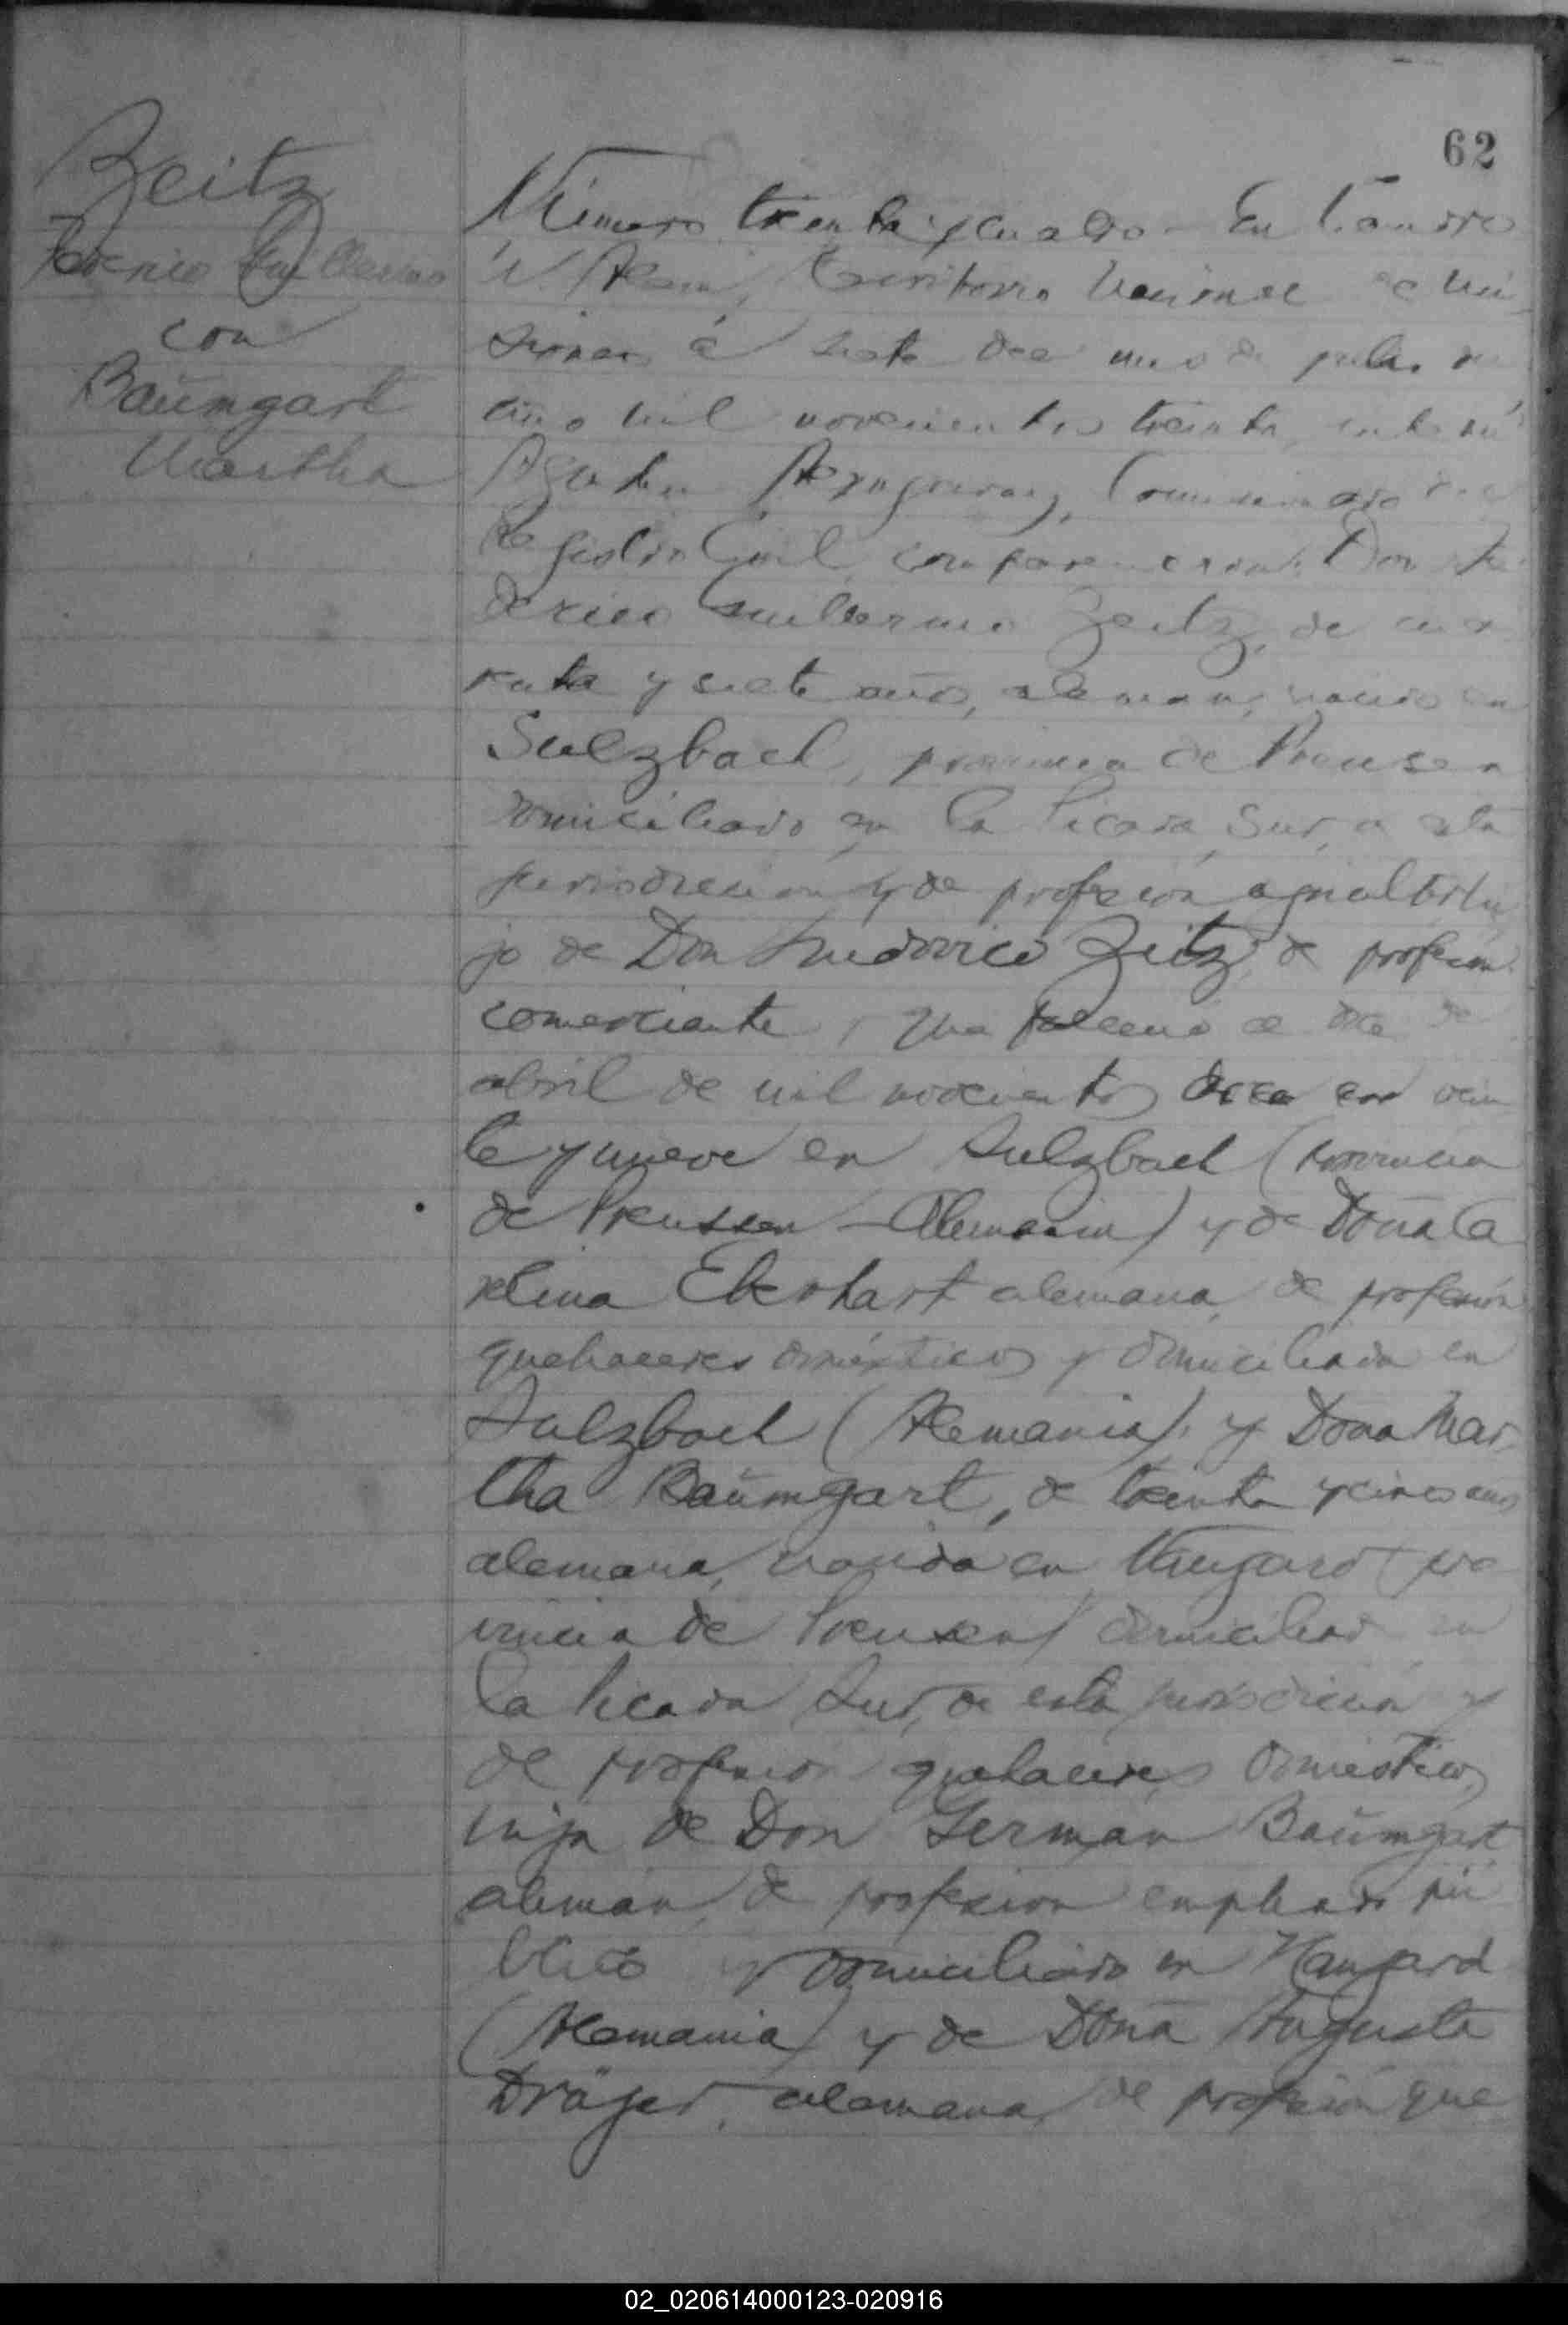 62
Zeitz
Federico Guillermo
con
Baŭmgart
Martha
Número treinta y cuatro - En Leandro
N. Alem, Territorio Nacional de Mi
siones á siete del mes de julio de
año mil novecientos treinta, ante mí
Comisionado del
Registro Civil, comparecieron: Don Fe
derico Guillermo Zeitz, de cua
renta y siete años, aleman, nacido en
Sulzbach, provincia de Preussen
domiciliado en la Picada Sur, de esta
jurisdicción y de profesión agricultor, hi
jo de Don Ludovico Zeitz, de profesión
comerciante, que falleció el doce de
abril de mil novecientos vein
te y nueve en Sulzbach (provincia
de Preussen - Alemania) y de Doña Ca
rolina Eberhart alemana, de profesión
quehaceres domésticos y domiciliada en
Sulzbach (Alemania), y Doña Mar
tha Baŭmgart, de treinta y cinco años
alemana, nacida en (pro
vincia de Preussen) domiciliada en
la Picada Sur, de esta jurisdicción y
de profesión quehaceres domésticos,
hija de Don German Baŭmgart
alemán, de profesion empleado pú
blico y domiciliado en Naugard
(Alemania) y de Doña Augusta
Dräger, alemana, de profesión que
02_020614000123-020916